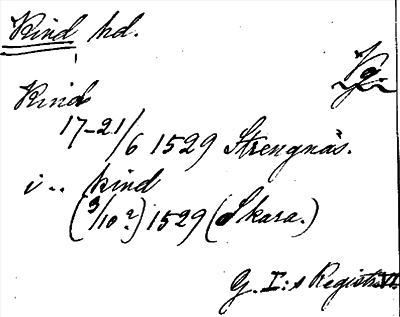 Kind hd.
Vg.
Kind
17-21/6 1529 Strengnäs.
i .. kind
(3/10?) 1529 (Skara.)
G. I:s Registr. VI